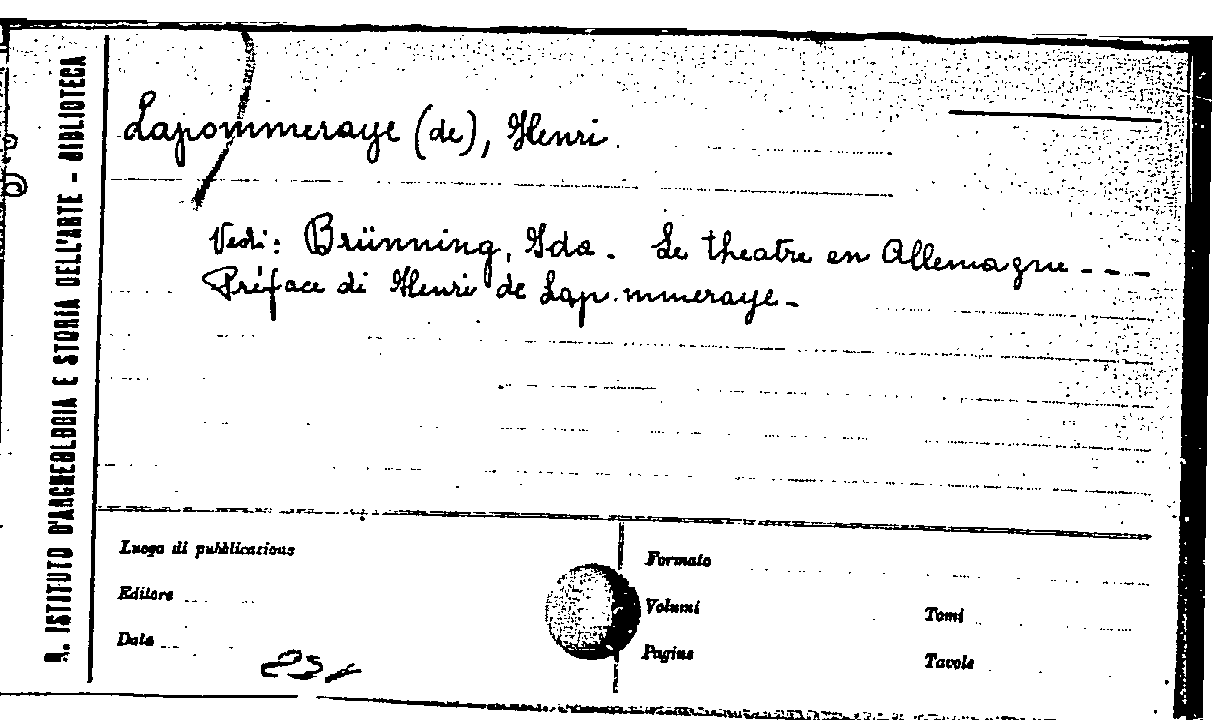 R. ISTITUTO D'ARCHEOLOGIA E STORIA DELL'ARTE - BIBLIOTECA
Lapommeraye (de), Henri
Vedi: Brünning, Ida. Le theatre en Allemagne - - -
Préface di Henri de Lapommeraye -
Luogo di pubblicazione
Editore
Data
Formato
Volumi
Tomi
Pagine
Tavole